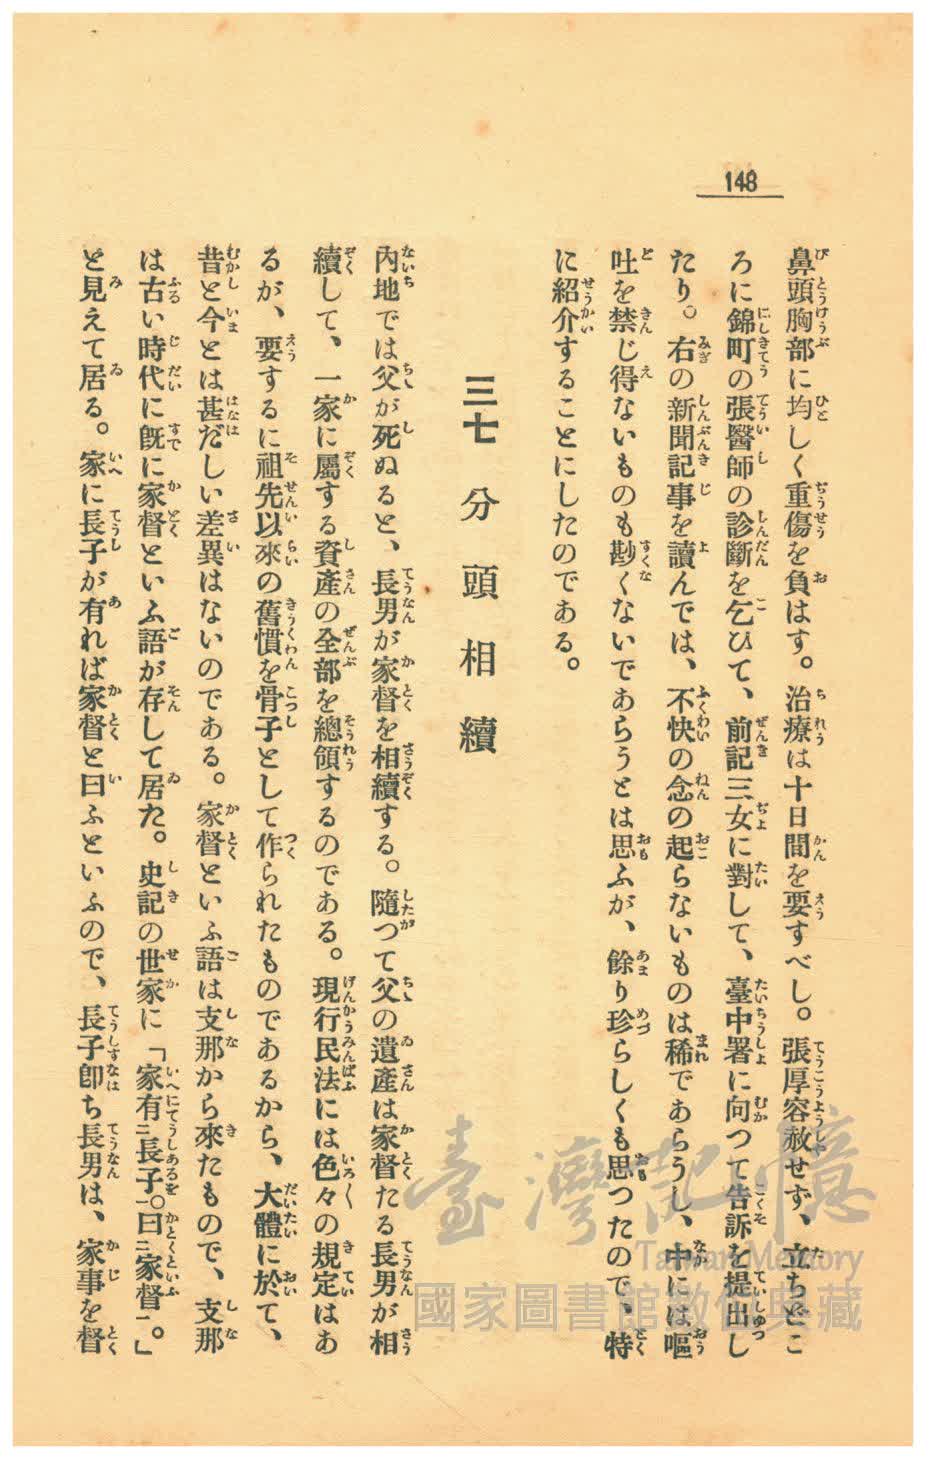 148
鼻頭胸部に均しく重傷を負はす。治療は十日間を要すべし。張厚容赦せず、立ちどこ
ろに錦町の張醫師の診斷を乞ひて、前記三女に對して、臺中署に向つて告訴を提出し
たり。右の新聞記事を讀んでは、不快の念の起らないものは稀であらうし、中には嘔
吐を禁じ得ないものも尠くないであらうとは思ふが、餘り珍らしくも思つたので、特
に紹介することにしたのである。
三七 分頭相續
內地では父が死ぬると、長男が家督を相續する。隨つて父の遺產は家督たる長男が相
續して、一家に屬する資產の全部を總領するのである。現行民法には色々の規定はあ
るが、要するに祖先以來の舊慣を骨子として作られたものであるから、大體に於て、
昔と今とは甚だしい差異はないのである。家督といふ語は支那から來たもので、支那
は古い時代に旣に家督といふ語が存して居た。史記の世家に「家有二長子一。曰二家督一。」
と見えて居る。家に長子が有れば家督と曰ふといふので、長子卽ち長男は、家事を督
臺灣記憶
Taiwan Memory
國家圖書館數位典藏